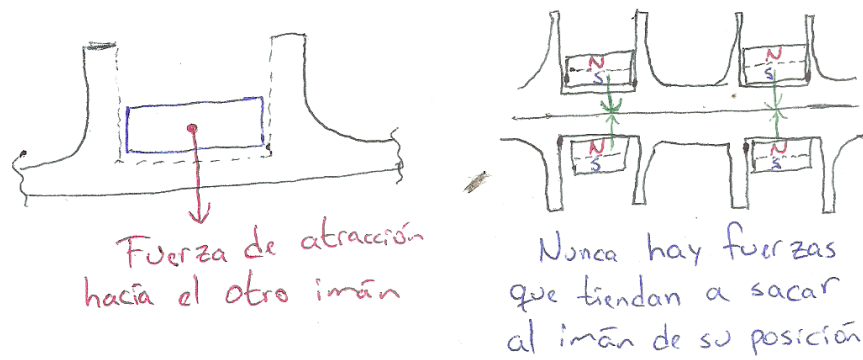 Fuerza de atracción
hacia el otro imán
N
S
N
S
N
S
N
S
Nunca hay fuerzas
que tiendan a sacar
al imán de su posición